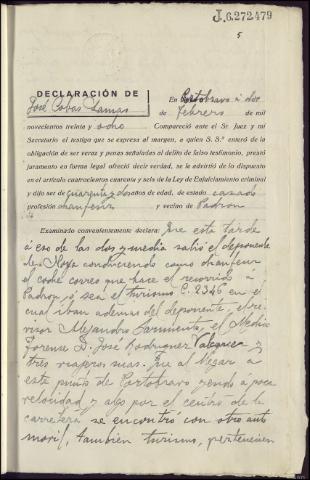 J.6.272479
5
DECLARACIÓN DE
José Cobas Lamas
En Portobravo á dos
de febrero de mil
novecientos treinta y ocho Compareció ante el Sr. Juez y mi
Secretario el testigo que se expresa al margen, a quien S. Sª. enteró de la
obligación de ser veraz y penas señaladas al delito de falso testimonio, prestó
juramento en forma legal ofreció decir verdad, se le advirtió de lo dispuesto
en el artículo cuatrocientos cuarenta y seis de la Ley de Enjuiciamiento criminal
y dijo ser de cuarenta y dos años de edad, de estado casado
profesión chanfeur y vecino de Padron
Examinado convenientemente declara: Que esta tarde
á eso de las dos y media salió el deponente
de Noya conduciendo como chanfeur
el coche correo que hace el recorrido á
Padron, ó sea el turismo C. 2346 en el
cual iban además del deponente, el re-
visor Alejandro Sarmiento, el Medico
Forense D. José Rodriguez y
tres viajeros mas. Que al llegar á
este punto de Portobravo yendo á poca
velocidad y algo por el centro de la
carretera se encontró con otro auto
movil, tambien turismo, pertenecien